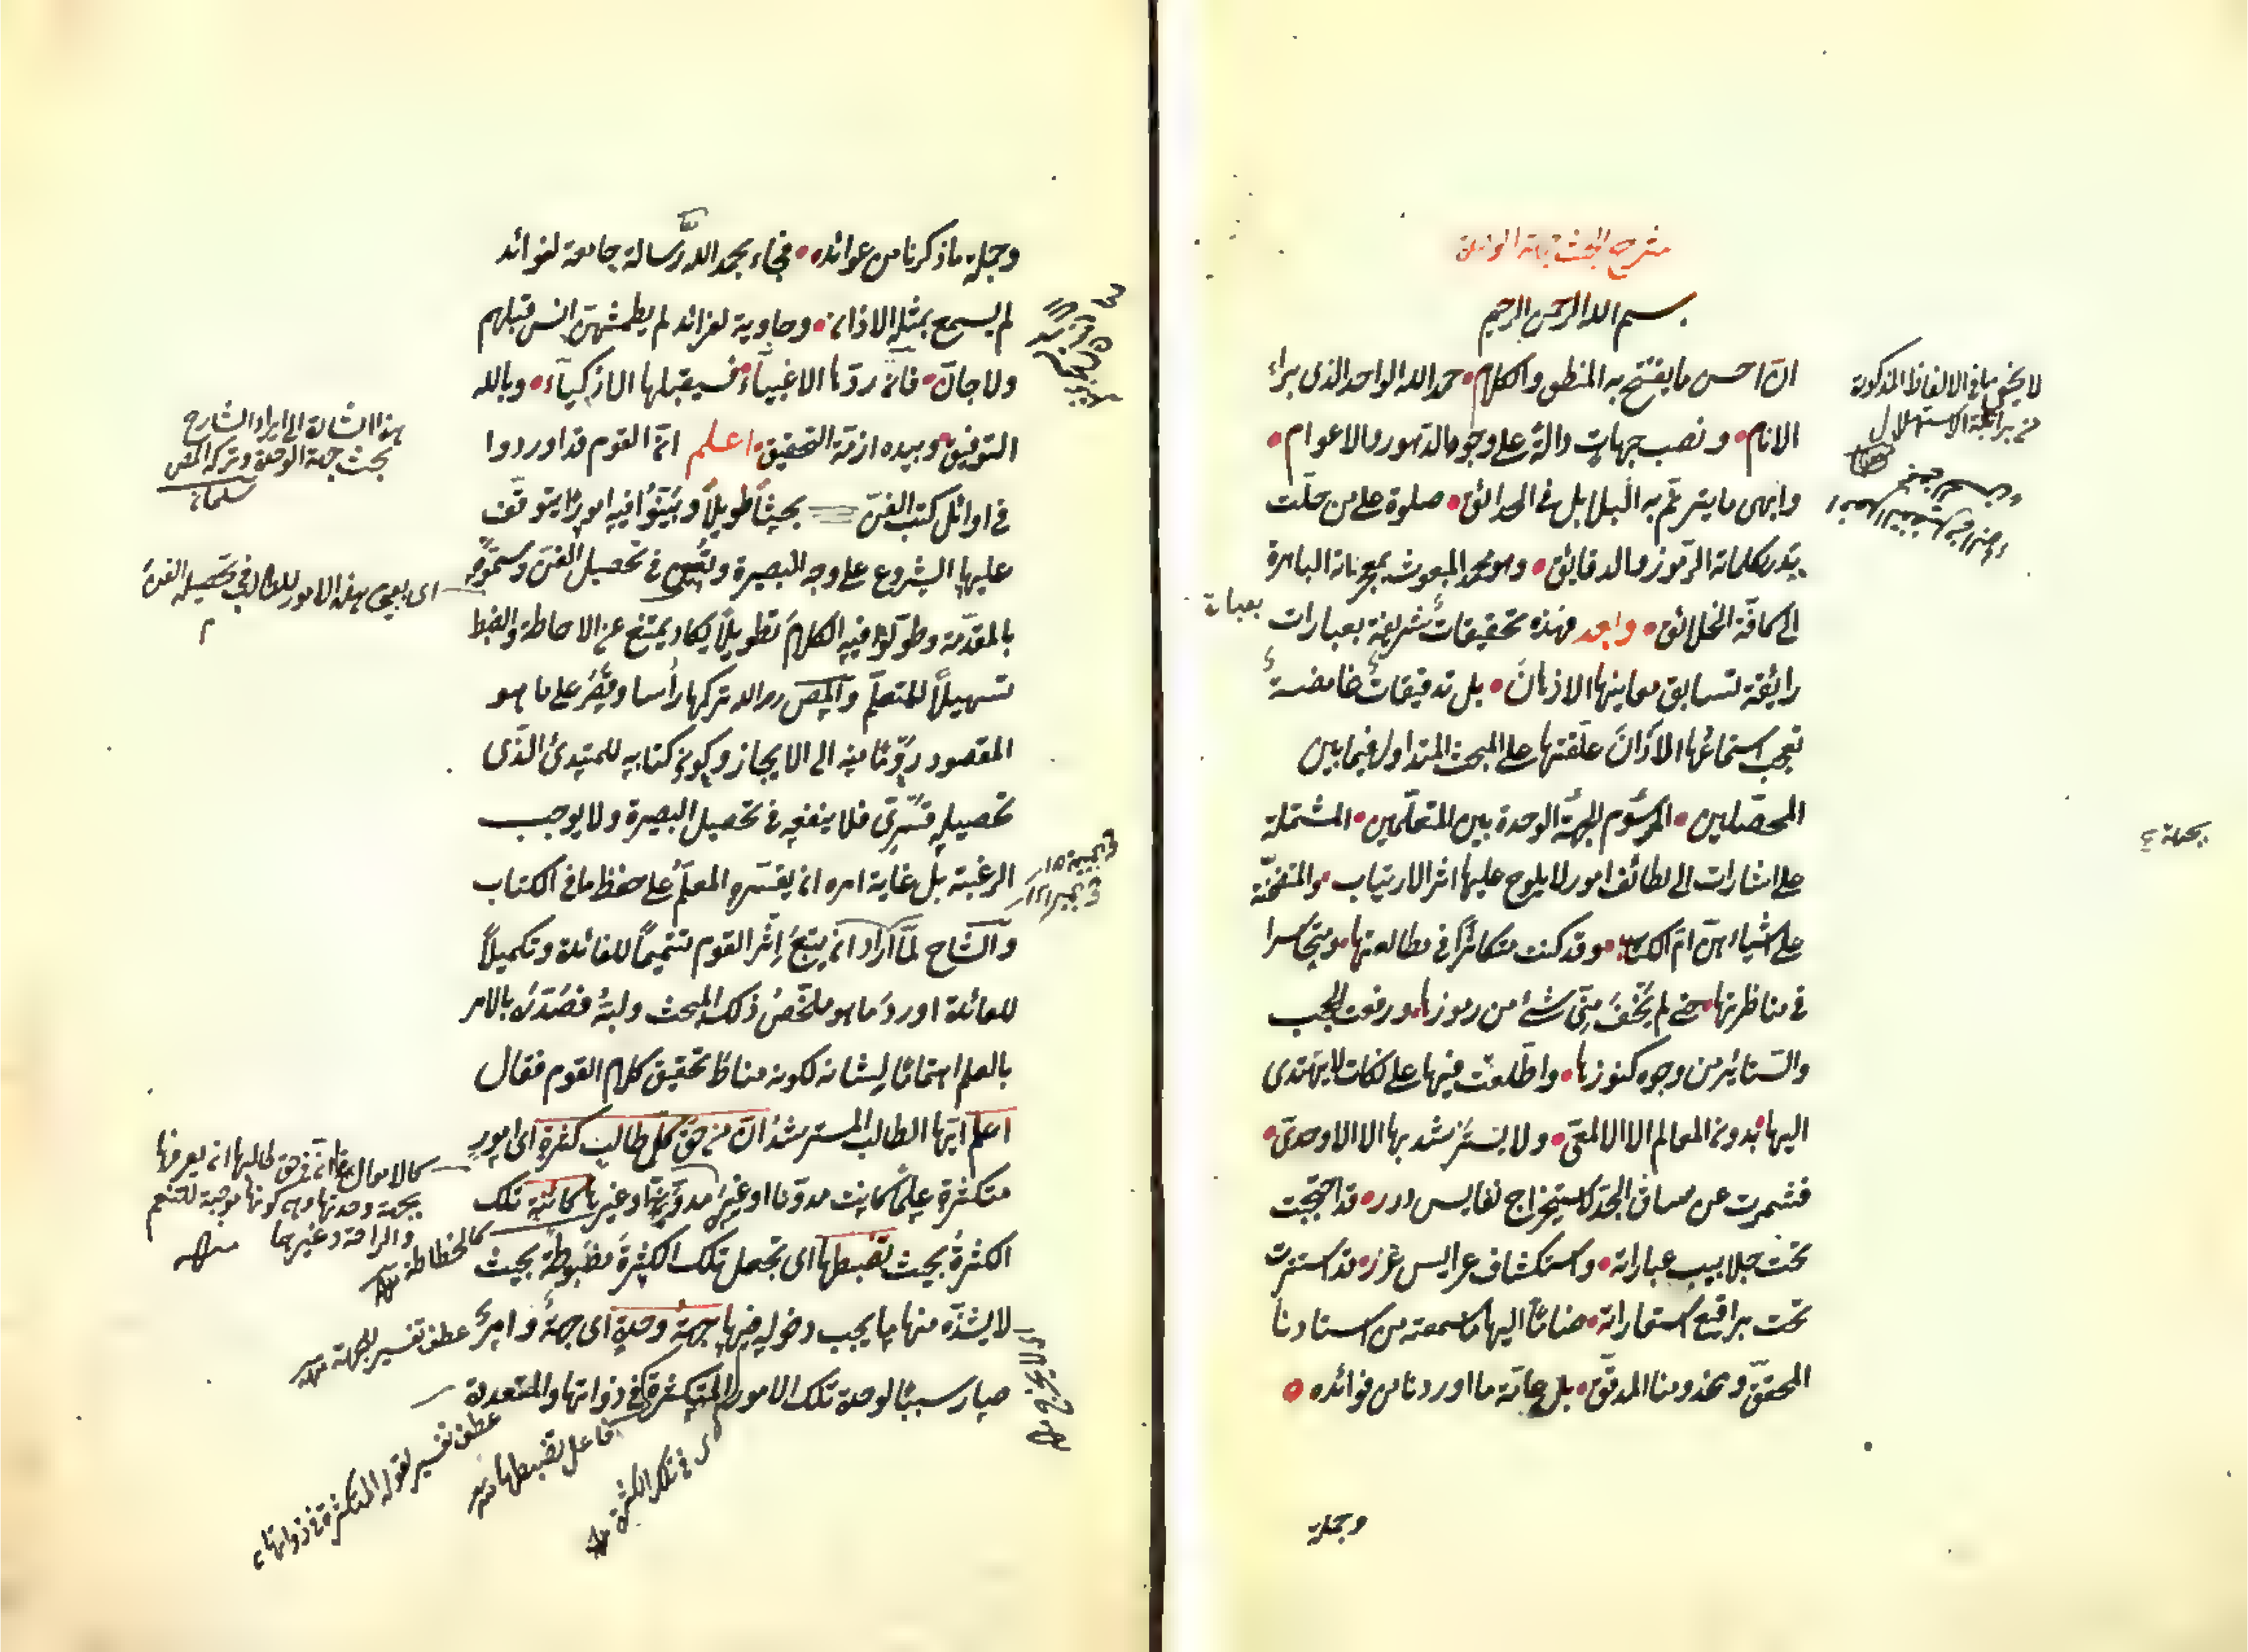 شرح البحث جهة الوحدة
بسم الله الرحمن الرحيم
ان احسن ما يفتتح به المنطق والكلام حمد الله الواحد الذى براء
الانام ونصب جهات دالة على وجوده الدهور والاعوام
وابهى ما يترنم به البلابل فى الحدائق صلوة على من حلّت
كلماته الرموز والدقايق وهو محمد المبعوث بمعجزاته الباهرة
الى كافة الخلائق وبعد فهذه تحقيقات شريفة بعبارات
رائقة تتسابق معاينها الاذهان بل تدقيقات غامضة
تعجب استماعها الاذان علقتها على المبحث المتداول فيما بين
المحصّلين الموسوم لجهة الوحدة بين المتعلمين المشتملة
على اشارات الى لطائف امور لا يلوح عليها اثر الارتياب والمتضمنة
على اشياء هن ام الكتاب وقد كنت متكاثرا فى مطالعتها ومتجاسرا
فى مناظرتها حتى لم يخف منى شئ من رموزها ورفعت الحجب
والستائر من وجوه كنوزها واطلعت فيها على نكات لا يهتدى
اليها بدون المعالم الا الالمعى ولا يسترشد بها الا الاوحدى
فشمرت عن ساق الجد لاستخراج نفايس درره قد احتجبت
تحت جلابيب عباراته واستكشاف عرايس غرره قد استترت
تحت براقيع استعاراته ضامّا اليها ما سمعته من استادنا
المحقق ومخدومنا المدقق بل عامة ما اوردنا من فوائده
وجملة
لا يخفى ما فى الالفاظ المذكورة
من براعة الاستهلال
بعبارة
بجملة
وجملة ما ذكرنا من عوائده فجاء بحمد الله رسالة جامعة لفوائد
لم يسمع بمثله الاذان وحاوية لفرائد لم يطمثهن انس قبلهم
ولا جان فان ردّها الاغبياء فسيقبلها الاذكياء وبالله
التوفيق وبيده ازمة التحقيق اعلم ان القوم قد اوردوا
فى اوائل كتب الفن بحثا طويلا وبيّنوا فيه امورا يتوقف
عليها الشروع على وجه البصيرة وتعين فى تحصيل الفن وسمّوه
بالمقدمة وطوّلوا فيه الكلام تطويلا يكاد يمتنع عن الاحاطة والضبط
تسهيلا للمتعلم والمص رحمه الله تركها رأسا وقصر على ما هو
المقصود روما منه الى الايجاز وكون كتابه للمبتدئ الذى
تحصيله قسرى فلا ينفعه فى تحصيل البصيرة ولا يوجب
الرغبة بل غاية امره ان يقسره المعلم على حفظ ما فى الكتاب
والشارح لما اراد ان يتبع اثر القوم تتميما للفائدة وتكميلا
للعائدة اورد ما هو ملخص ذلك المبحث ولبه فصدره بالامر
بالعلم اهتماما لشانه لكونه مناط تحقيق كلام القوم فقال
اعلم ايها الطالب المسترشد ان من حق كل طالب كثرة اى امور
متكثرة علما كانت مدونا او غير مدونة او غيرها كائنة تلك
الكثرة بحيث تضبطها اى تجعل تلك الكثرة مضبوطة بحيث
لا يشذ منها ما يجب دخوله فيها جهة وحدة اى جهة وامر
صار سببا لوحدة تلك الامور المتكثرة فى ذواتها والمتعددة
هذا اشارة الى ايراد الشارح
بحث جهة الوحدة وترك المص
اى يعين هذه الامور للطالب فى تحصيل الفن
فى حق طالبها ان يعرفها
بجهة وحدتها وهى كونها موجبة للتنعم
والراحة وغيرهما منه
كالخطاطة منه
عطف تفسير للجهة منه
اى لا يخرج منه
عطف تفسير لقوله المتكثرة فى ذواتها
فاعل تضبطها منه
اى فى تلك الكثرة منه